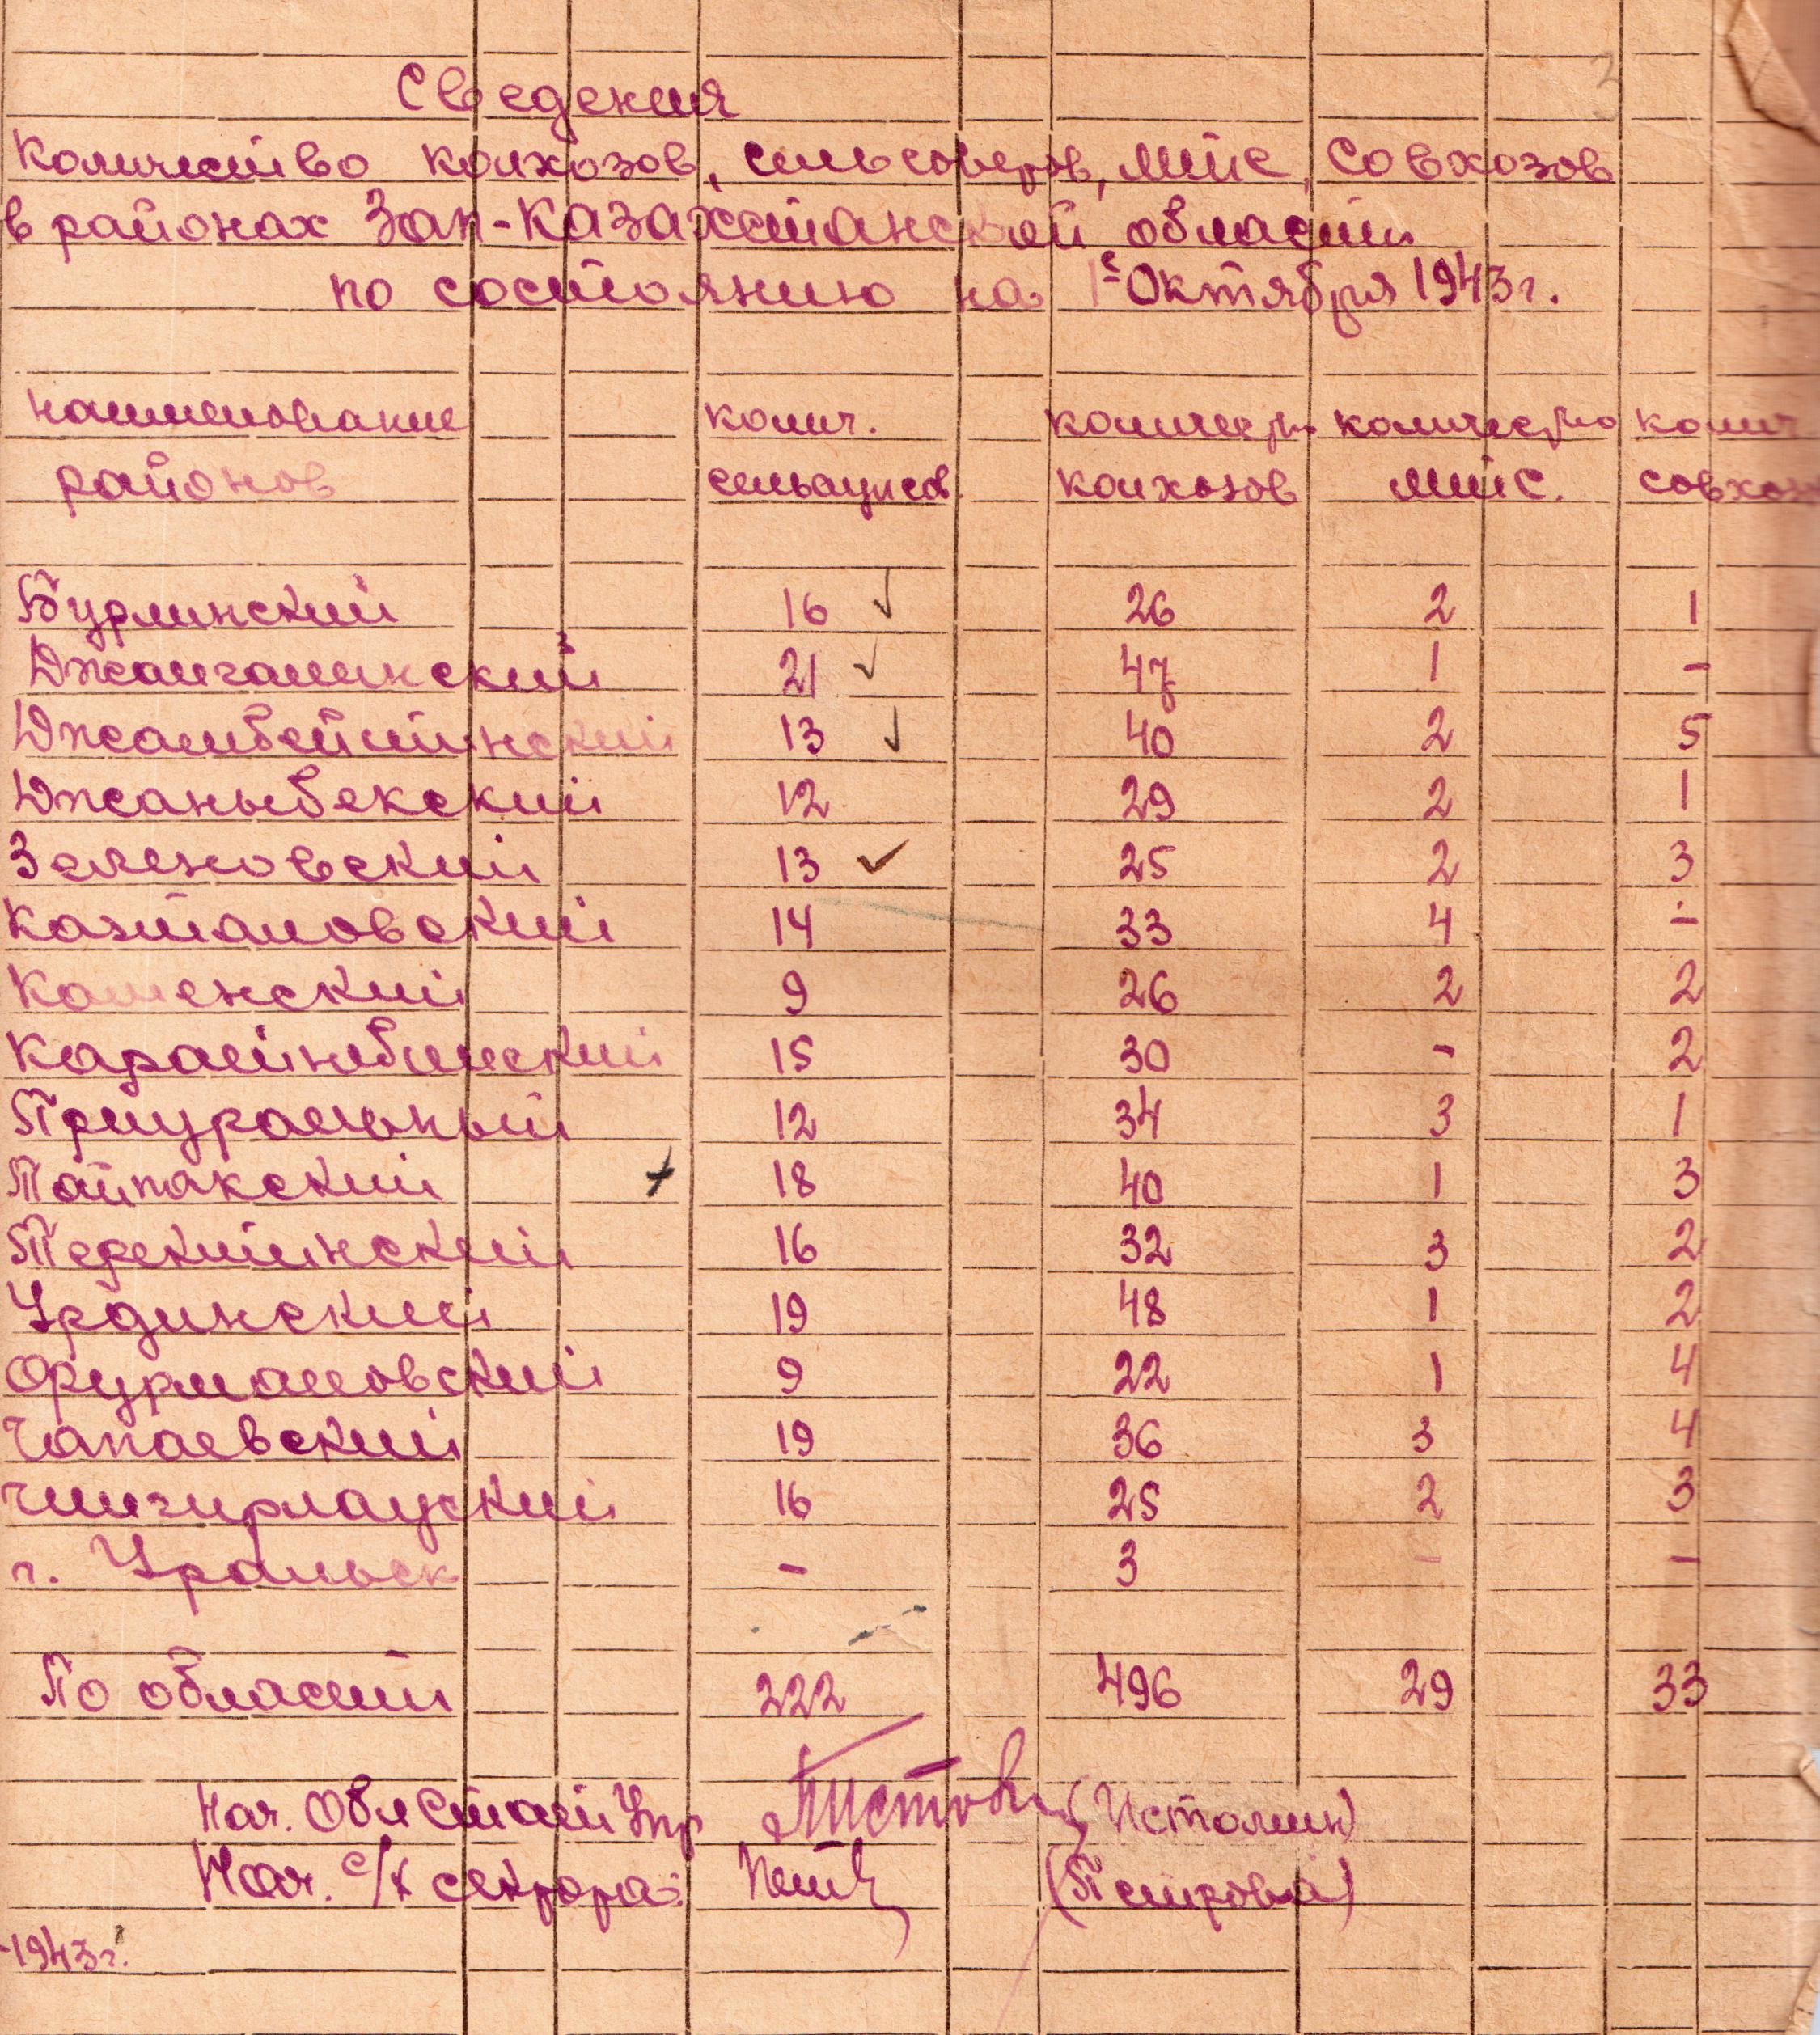 Сведения
Количество колхозов, сельсоветов, МТС, Совхозов
в районах Зап-Казахстанской области
по состоянию на 1е Октября 1943г.
наименование колич. количество количество колич
районов сельаулсов. колхозов МТС. совхоз
Бурлинский 16 26 2 1
Джангалинский 21 47 1 -
Джамбейтинский 13 40 2 5
Джаныбекский 12 29 2 1
Зеленовский 13 25 2 3
Казталовский 14 33 4 -
Каменский 9 26 2 2
Каратюбинский 15 30 - 2
Приуральный 12 34 3 1
Тайпакский 18 40 1 3
Теректинский 16 32 3 2
Урдинский 19 48 1 2
Фурмановский 9 22 1 4
Чапаевский 19 36 3 4
Чингирлауский 16 25 2 3
г. Уральск - 3 - -
По области 222 496 29 33
Нач. ОблСтатУпр (Истомин)
Нач. с/х сектора: (Петрова)
1943г.